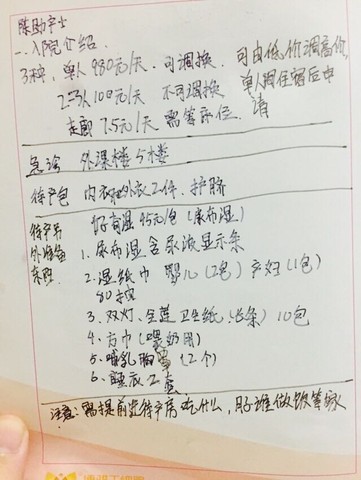 陈助产士
一.入院介绍.
3种, 单人 980元/天. 可调换. 可由低价调高价,
2-3人 100元/天 不可调换 单人间住宿后申请
走廊 7.5元/天 需等床位.
急诊 外课楼 5楼
待产包 内衣 外衣 2件. 护脐
待产另外准备
好奇湿 95元/包 (尿布湿)
1. 尿布湿 含尿液显示条
2. 湿纸巾 婴儿 (2包) 产妇 (1包)
80抽
3. 双灯. 卫生纸 (长条) 10包
4. 方巾 (喂奶用)
5. 哺乳胸罩 (2个)
6. 睡衣 2套
注意: 需提前 待产房 吃什么, 月子谁做饭等